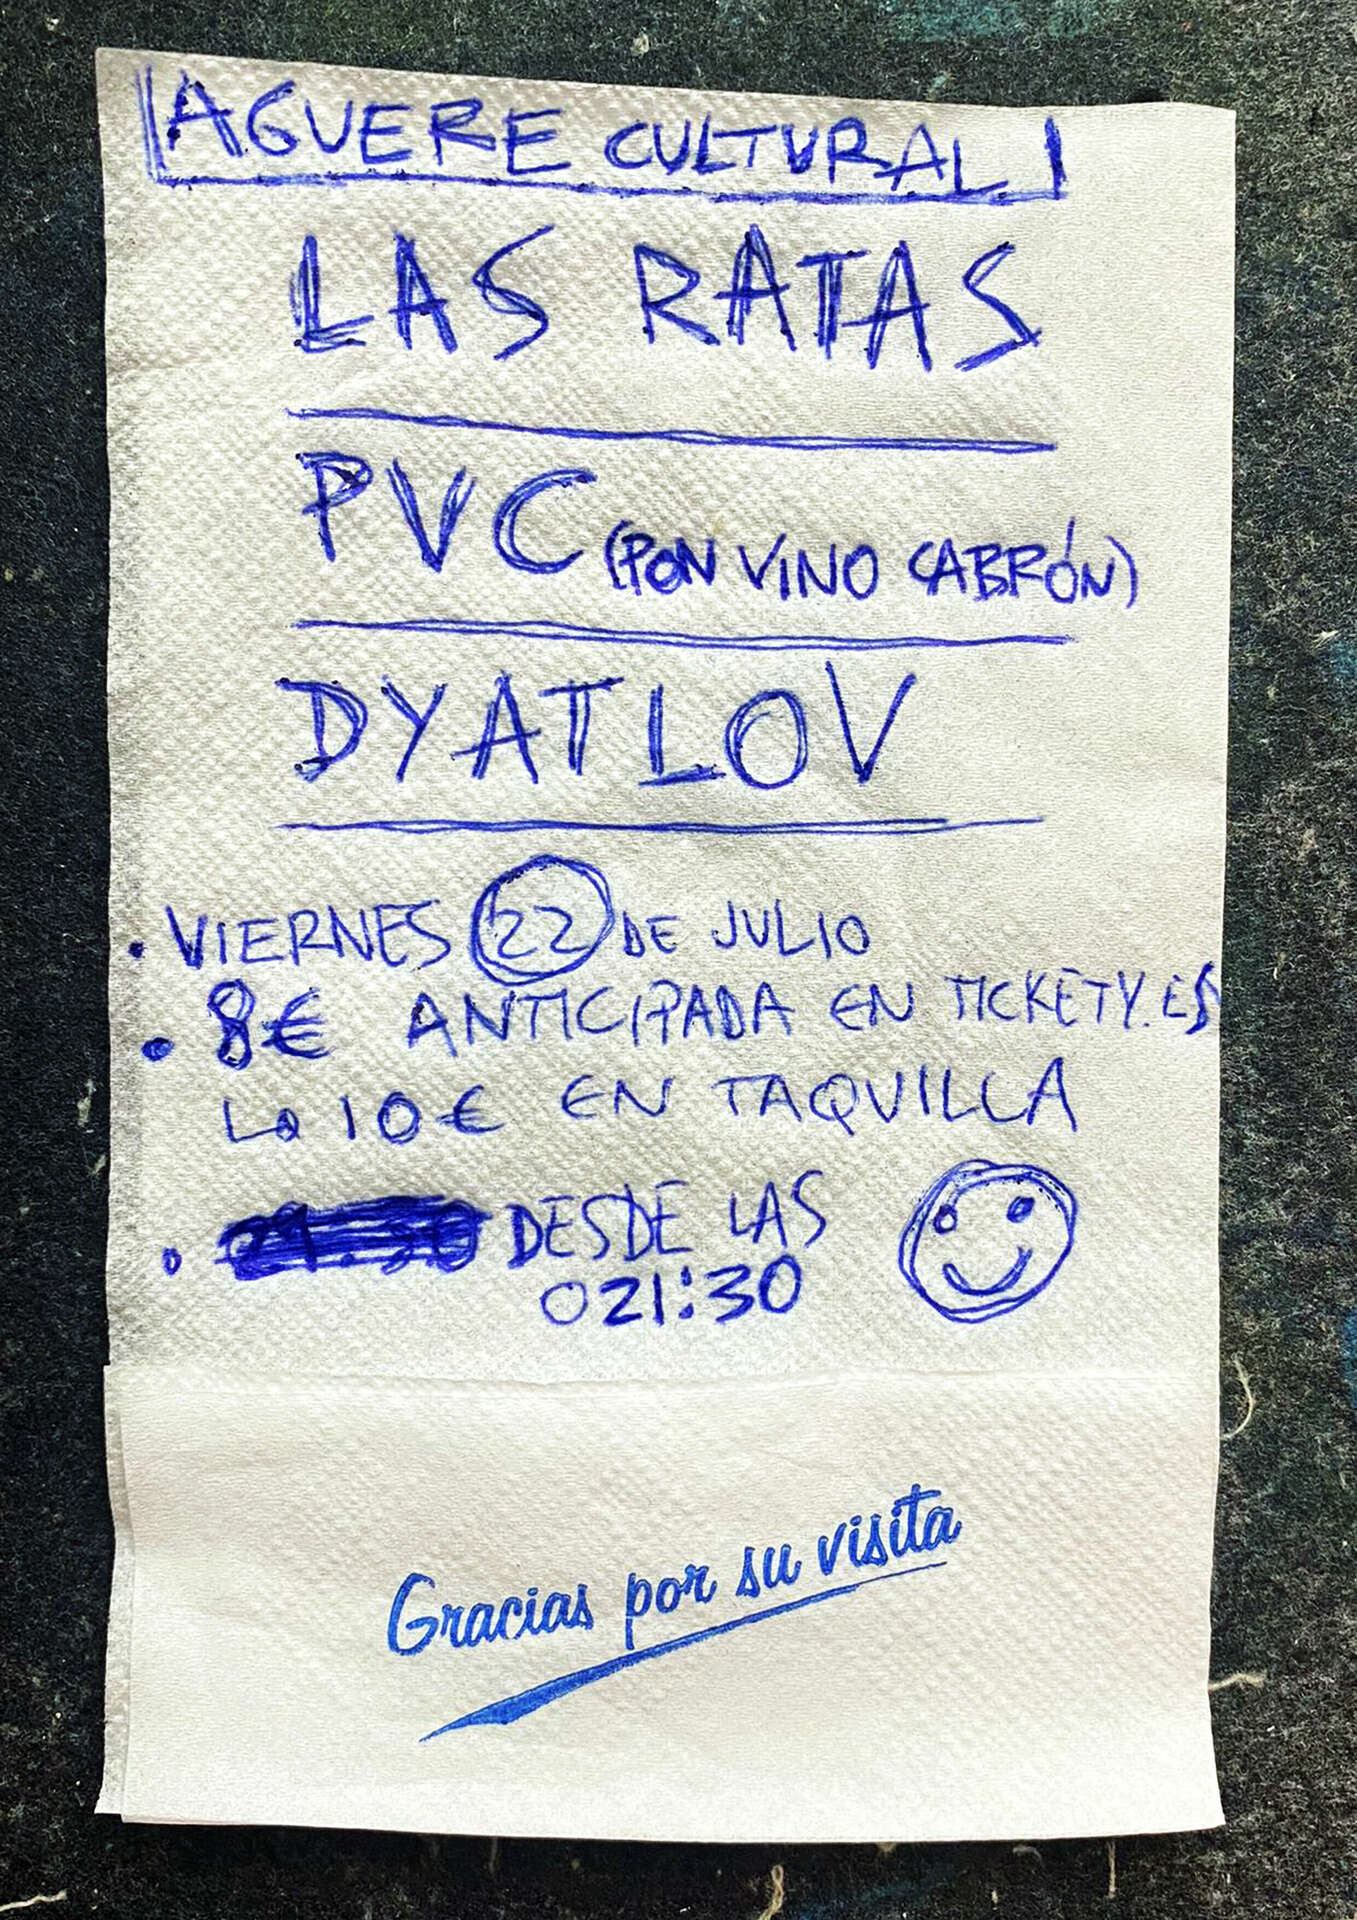 AGUERE CULTURAL
LAS RATAS
PVC (PON VINO CABRÓN)
DYATLOV
• VIERNES 22 DE JULIO
• 8€ ANTICIPADA EN TICKETY.ES
10€ EN TAQUILLA
• DESDE LAS
021:30
Gracias por su visita